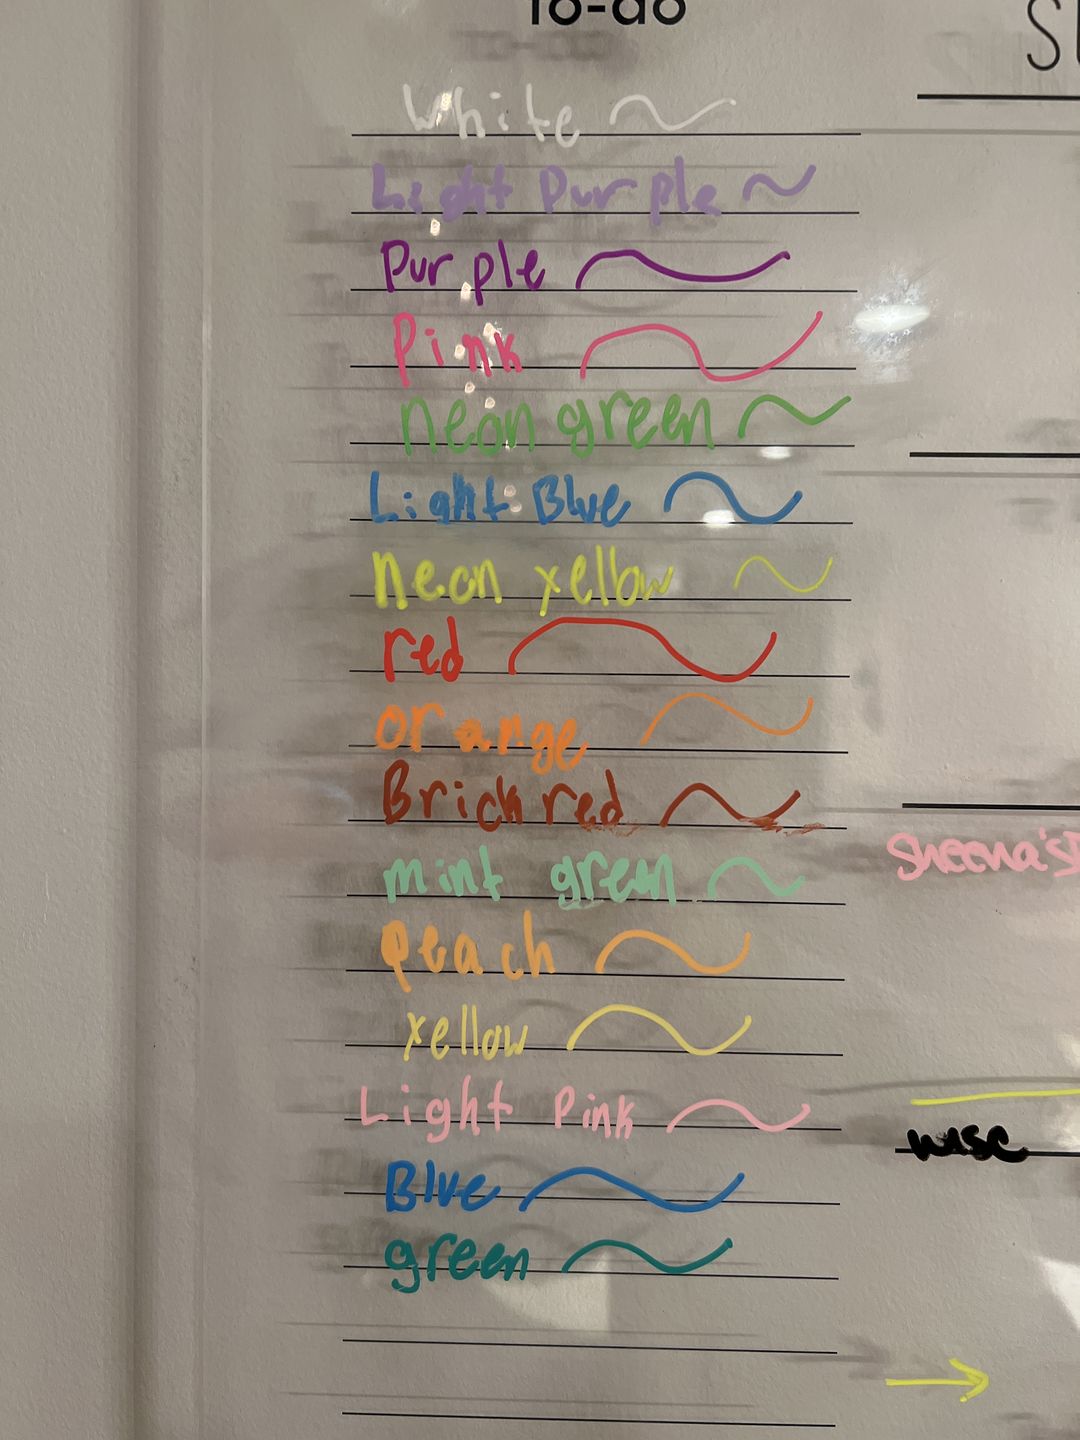 To-do
White
Light Purple
Purple
Pink
neon green
Light Blue
neon yellow
red
orange
Brick red
mint green
peach
yellow
Light Pink
Blue
green
Sheena's
wisc